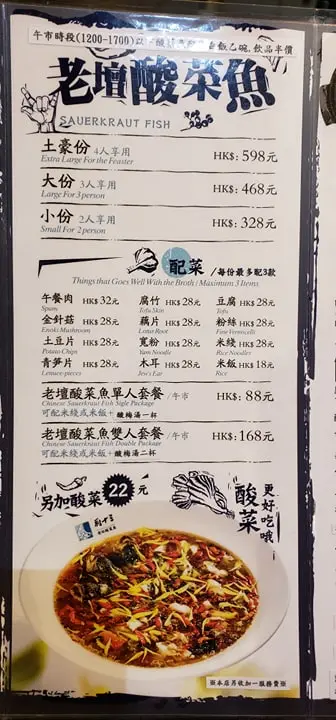 午市時段(1200-1700)以
飯乙碗,飲品半價
老壇酸菜魚
SAUERKRAUT FISH
土豪份 4人享用 HK$: 598元
Extra Large For the Feaster
大份 3人享用 HK$: 468元
Large For 3 person
小份 2人享用 HK$: 328元
Small For 2 person
配菜 /每份最多配3款
Things that Goes Well With the Broth / Maximum 3 Items
午餐肉 HK$ 32元 腐竹 HK$ 28元 豆腐 HK$ 28元
Spam Tofu Skin Tofu
金針菇 HK$ 28元 藕片 HK$ 28元 粉絲 HK$ 28元
Enoki Mushroom Lotus Root Fine Vermicelli
土豆片 HK$ 28元 寬粉 HK$ 28元 米綫 HK$ 28元
Potato Chips Yam Noodle Rice Noodles
青笋片 HK$ 28元 木耳 HK$ 28元 米飯 HK$ 18元
Lettuce-pieces Jew's Ear Rice
老壇酸菜魚單人套餐 /午市 HK$: 88元
Chinese Sauerkraut Fish Sigle Package
可配米綫或米飯+酸梅湯一杯
老壇酸菜魚雙人套餐 /午市 HK$: 168元
Chinese Sauerkraut Fish Double Package
可配米綫或米飯+酸梅湯二杯
另加酸菜 22 元
酸菜
更好吃哦
※本店另收加一服務費※